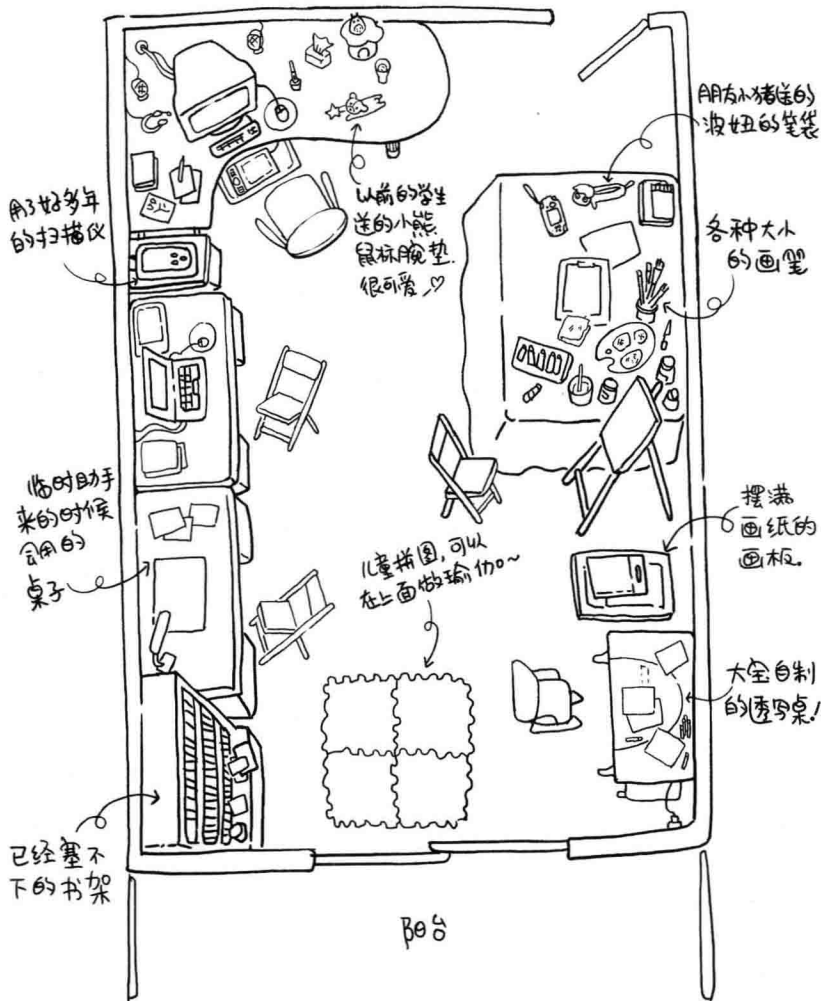 朋友小猪送的
波妞的笔袋
用了好多年
的扫描仪
以前的学生
送的小熊
鼠标腕垫.
很可爱
各种大小
的画笔
临时助手
来的时候
会用的
桌子
儿童拼图,可以
在上面做瑜伽。~
摆满
画纸的
画板。
大宝自制
的透写桌!
已经塞不
下的书架
阳台